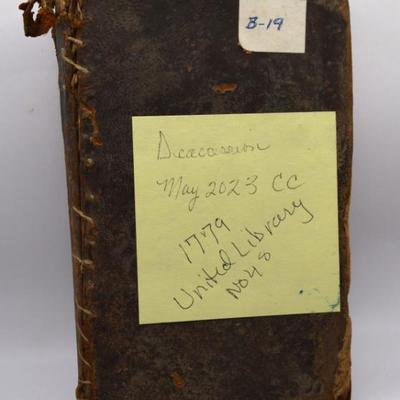 B-19
Deaccession
May 2023 CC
1779
United Library
No 48